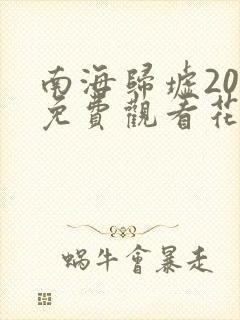 南海歸墟20
免費觀看花
蝸牛會暴走